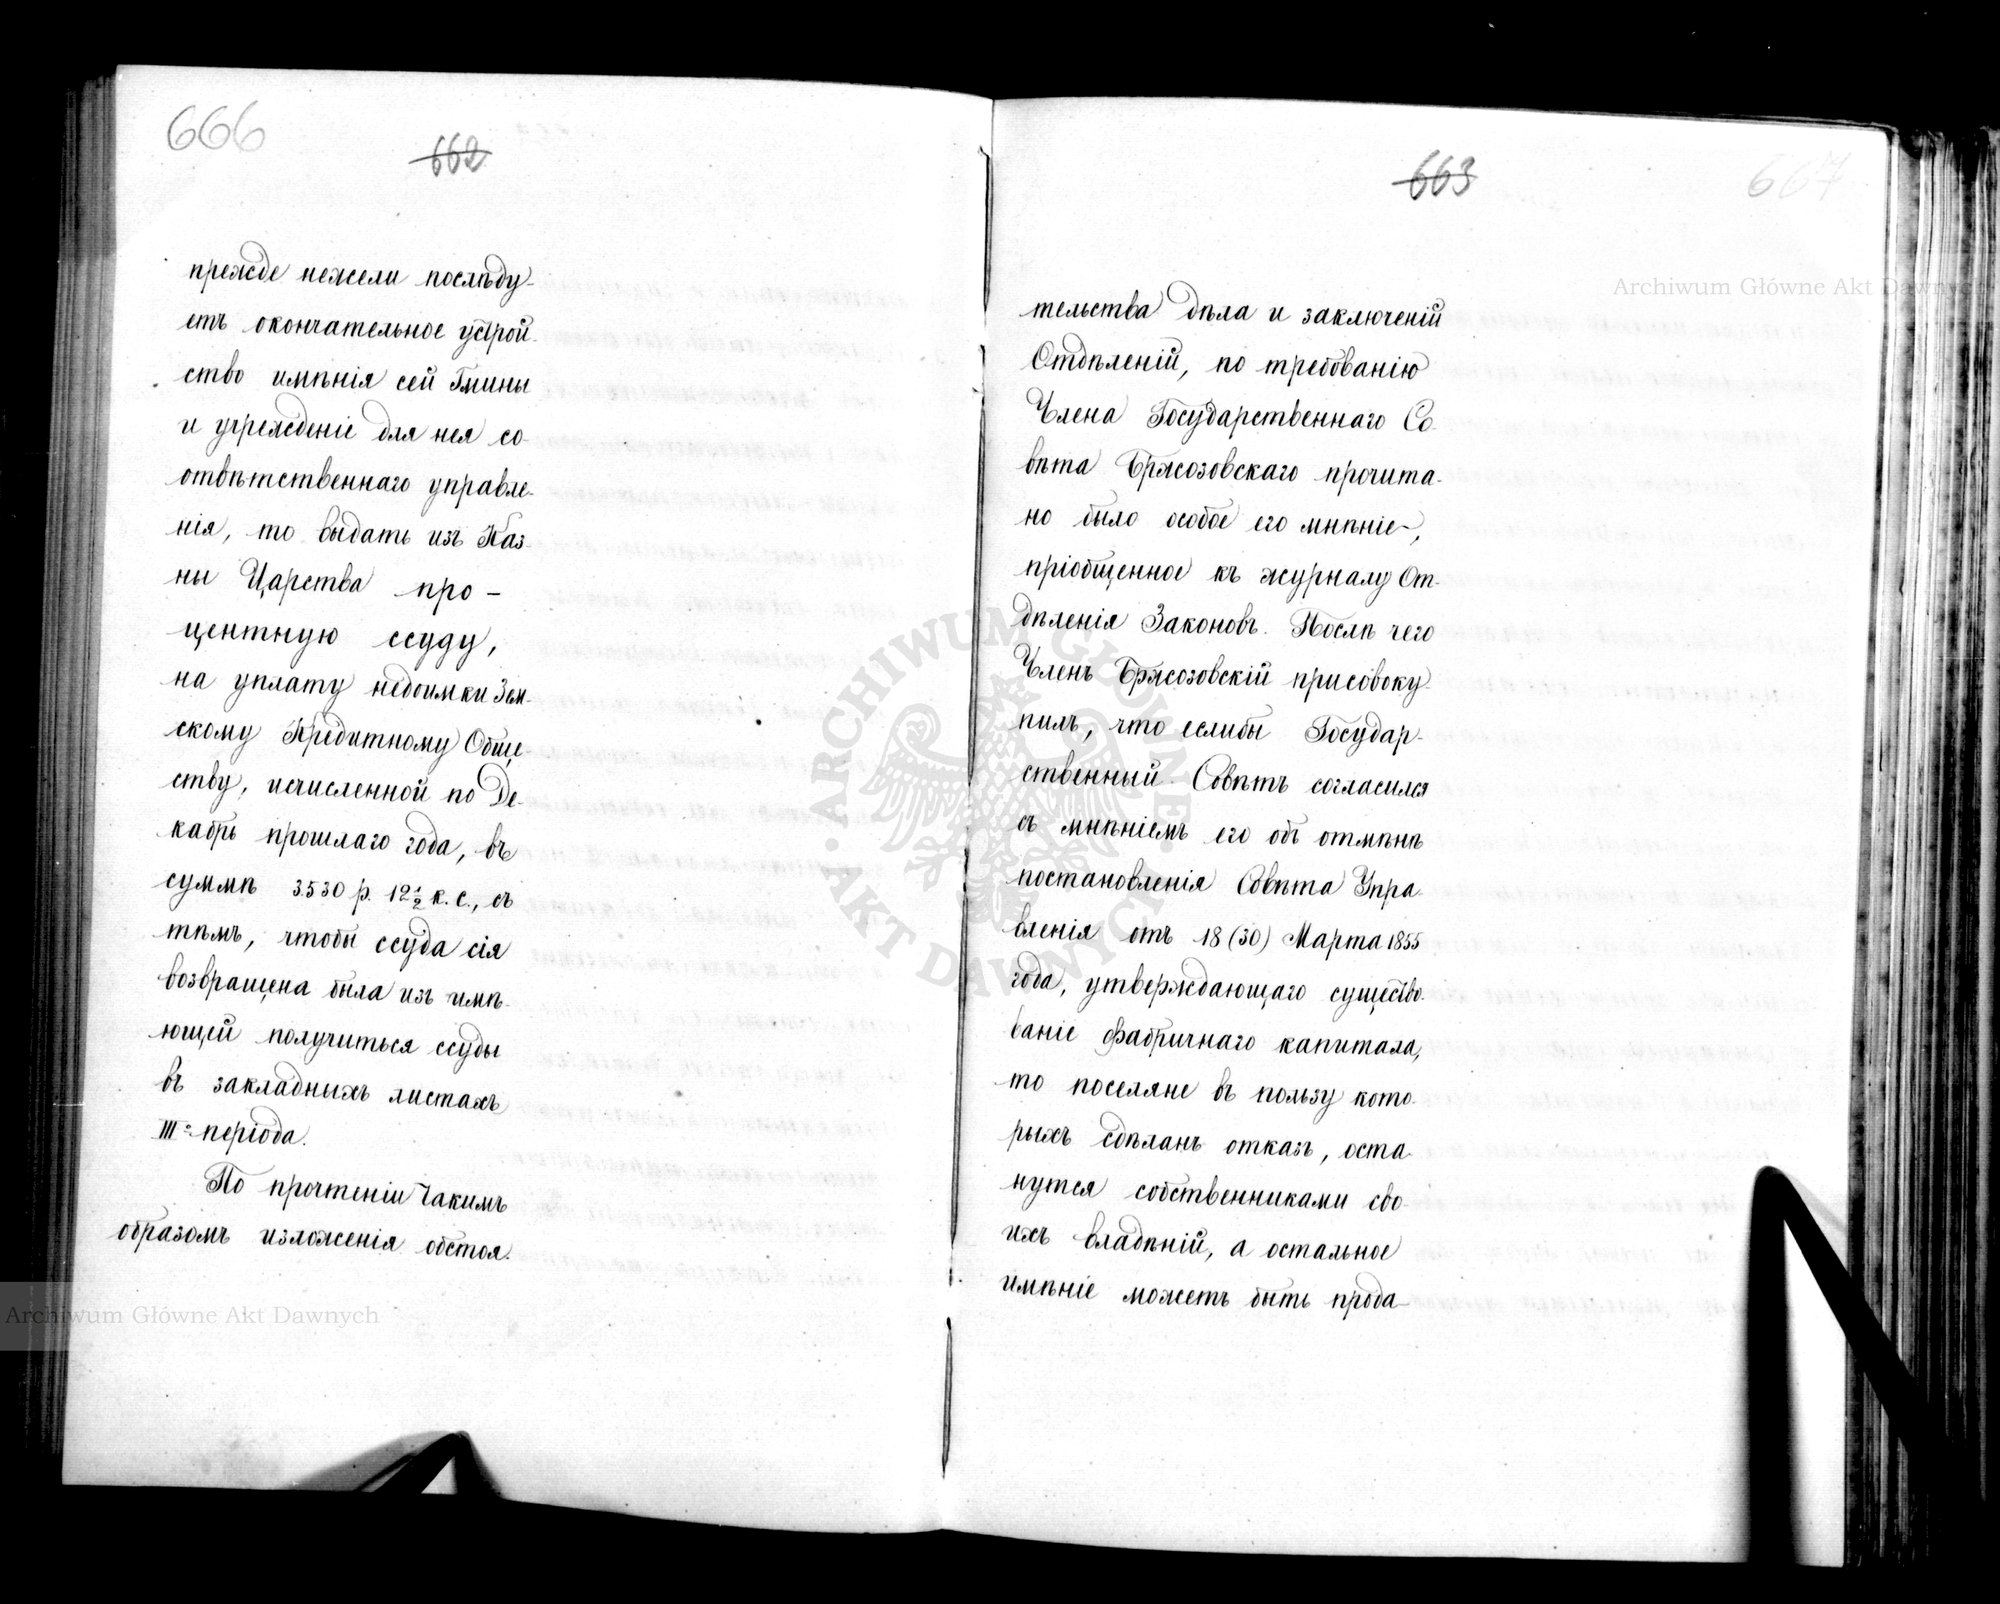 666
662
прежде нежели послѣду-
етъ окончательное устрой-
ство имѣнія сей Гмины
и учрежденіе для нея со-
отвѣтственнаго управле-
нія, то выдать изъ Каз-
ны Царства про-
центную ссуду,
на уплату недоимки Зем-
скому Кредитному Обще-
ству, исчисленной по Де-
кабрь прошлаго года, въ
суммѣ 3530 р. 12 1/2 к. с., съ
тѣмъ, чтобы ссуда сія
возвращена была изъ имѣ-
ющей получиться ссуды
въ закладныхъ листахъ
III-о періода.
По прочтеніи такимъ
образомъ изложенія обстоя-
663
667
тельства дѣла и заключеній
Отдѣленій, по требованію
Члена Государственнаго Со-
вѣта Бржозовскаго прочита-
но было особое его мнѣніе,
пріобщенное къ журналу От-
дѣленія Законовъ. Послѣ чего
Членъ Бржозовскій присовоку-
пилъ, что еслибы Государ-
ственный Совѣтъ согласился
съ мнѣніемъ его объ отмѣнѣ
постановленія Совѣта Упра-
вленія отъ 18 (30) Марта 1855
года, утверждающаго существо-
ваніе фабричнаго капитала,
то поселяне въ пользу кото-
рыхъ сдѣланъ отказъ, оста-
нутся собственниками сво-
ихъ владѣній, а остальное
имѣніе можетъ быть прода-
Archiwum Główne Akt Dawnych
Archiwum Główne Akt Dawnych
· ARCHIWUM GŁÓWNE · AKT DAWNYCH